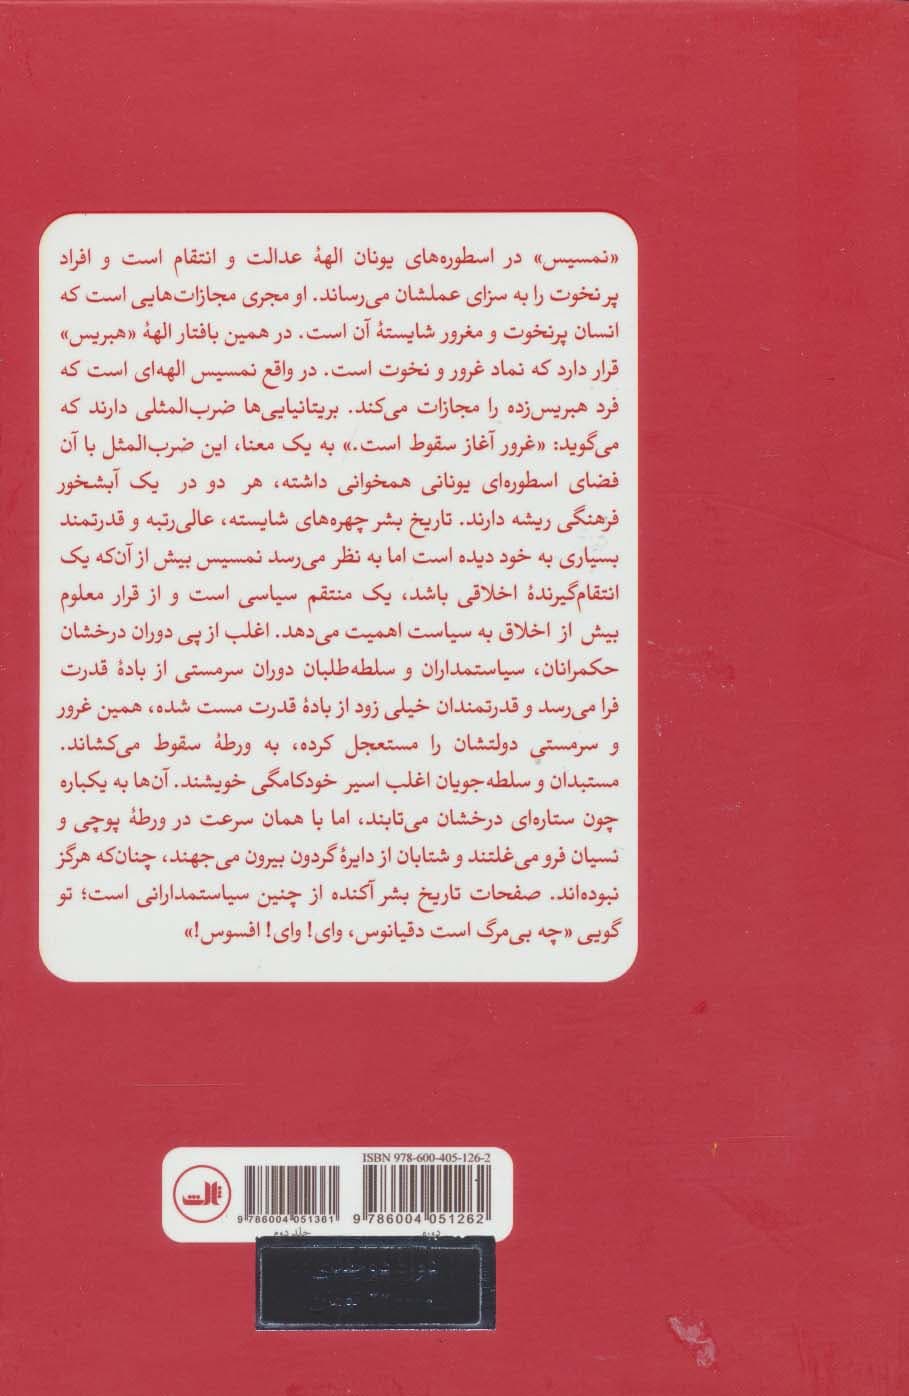 «نمسیس» در اسطوره‌های یونان الههٔ عدالت و انتقام است و افراد
پر نخوت را به سزای عملشان می‌رساند. او مجری مجازات‌هایی است که
انسان پرنخوت و مغرور شایستهٔ آن است. در همین بافتار الههٔ «هبریس»
قرار دارد که نماد غرور و نخوت است. در واقع نمسیس الهه‌ای است که
فرد هبریس‌زده را مجازات می‌کند. بریتانیایی‌ها ضرب‌المثلی دارند که
می‌گوید: «غرور آغاز سقوط است.» به یک معنا، این ضرب‌المثل با آن
فضای اسطوره‌ای یونانی همخوانی داشته، هر دو در یک آبشخور
فرهنگی ریشه دارند. تاریخ بشر چهره‌های شایسته، عالی‌رتبه و قدرتمند
بسیاری به خود دیده است اما به نظر می‌رسد نمسیس بیش از آن‌که یک
انتقام‌گیرندهٔ اخلاقی باشد، یک منتقم سیاسی است و از قرار معلوم
بیش از اخلاق به سیاست اهمیت می‌دهد. اغلب از پی دوران درخشان
حکمرانان، سیاستمداران و سلطه‌طلبان دوران سرمستی از بادهٔ قدرت
فرا می‌رسد و قدرتمندان خیلی زود از بادهٔ قدرت مست شده، همین غرور
و سرمستی دولتشان را مستعجل کرده، به ورطهٔ سقوط می‌کشاند.
مستبدان و سلطه‌جویان اغلب اسیر خودکامگی خویشند. آن‌ها به یکباره
چون ستاره‌ای درخشان می‌تابند، اما با همان سرعت در ورطهٔ پوچی و
نسیان فرو می‌غلتند و شتابان از دایرهٔ گردون بیرون می‌جهند، چنان‌که هرگز
نبوده‌اند. صفحات تاریخ بشر آکنده از چنین سیاستمدارانی است؛ تو
گویی «چه بی‌مرگ است دقیانوس، وای! وای! افسوس!»
ISBN 978-600-405-126-2
9 786004 051262
9 786004 051361
دوره
جلد دوم
ثالث